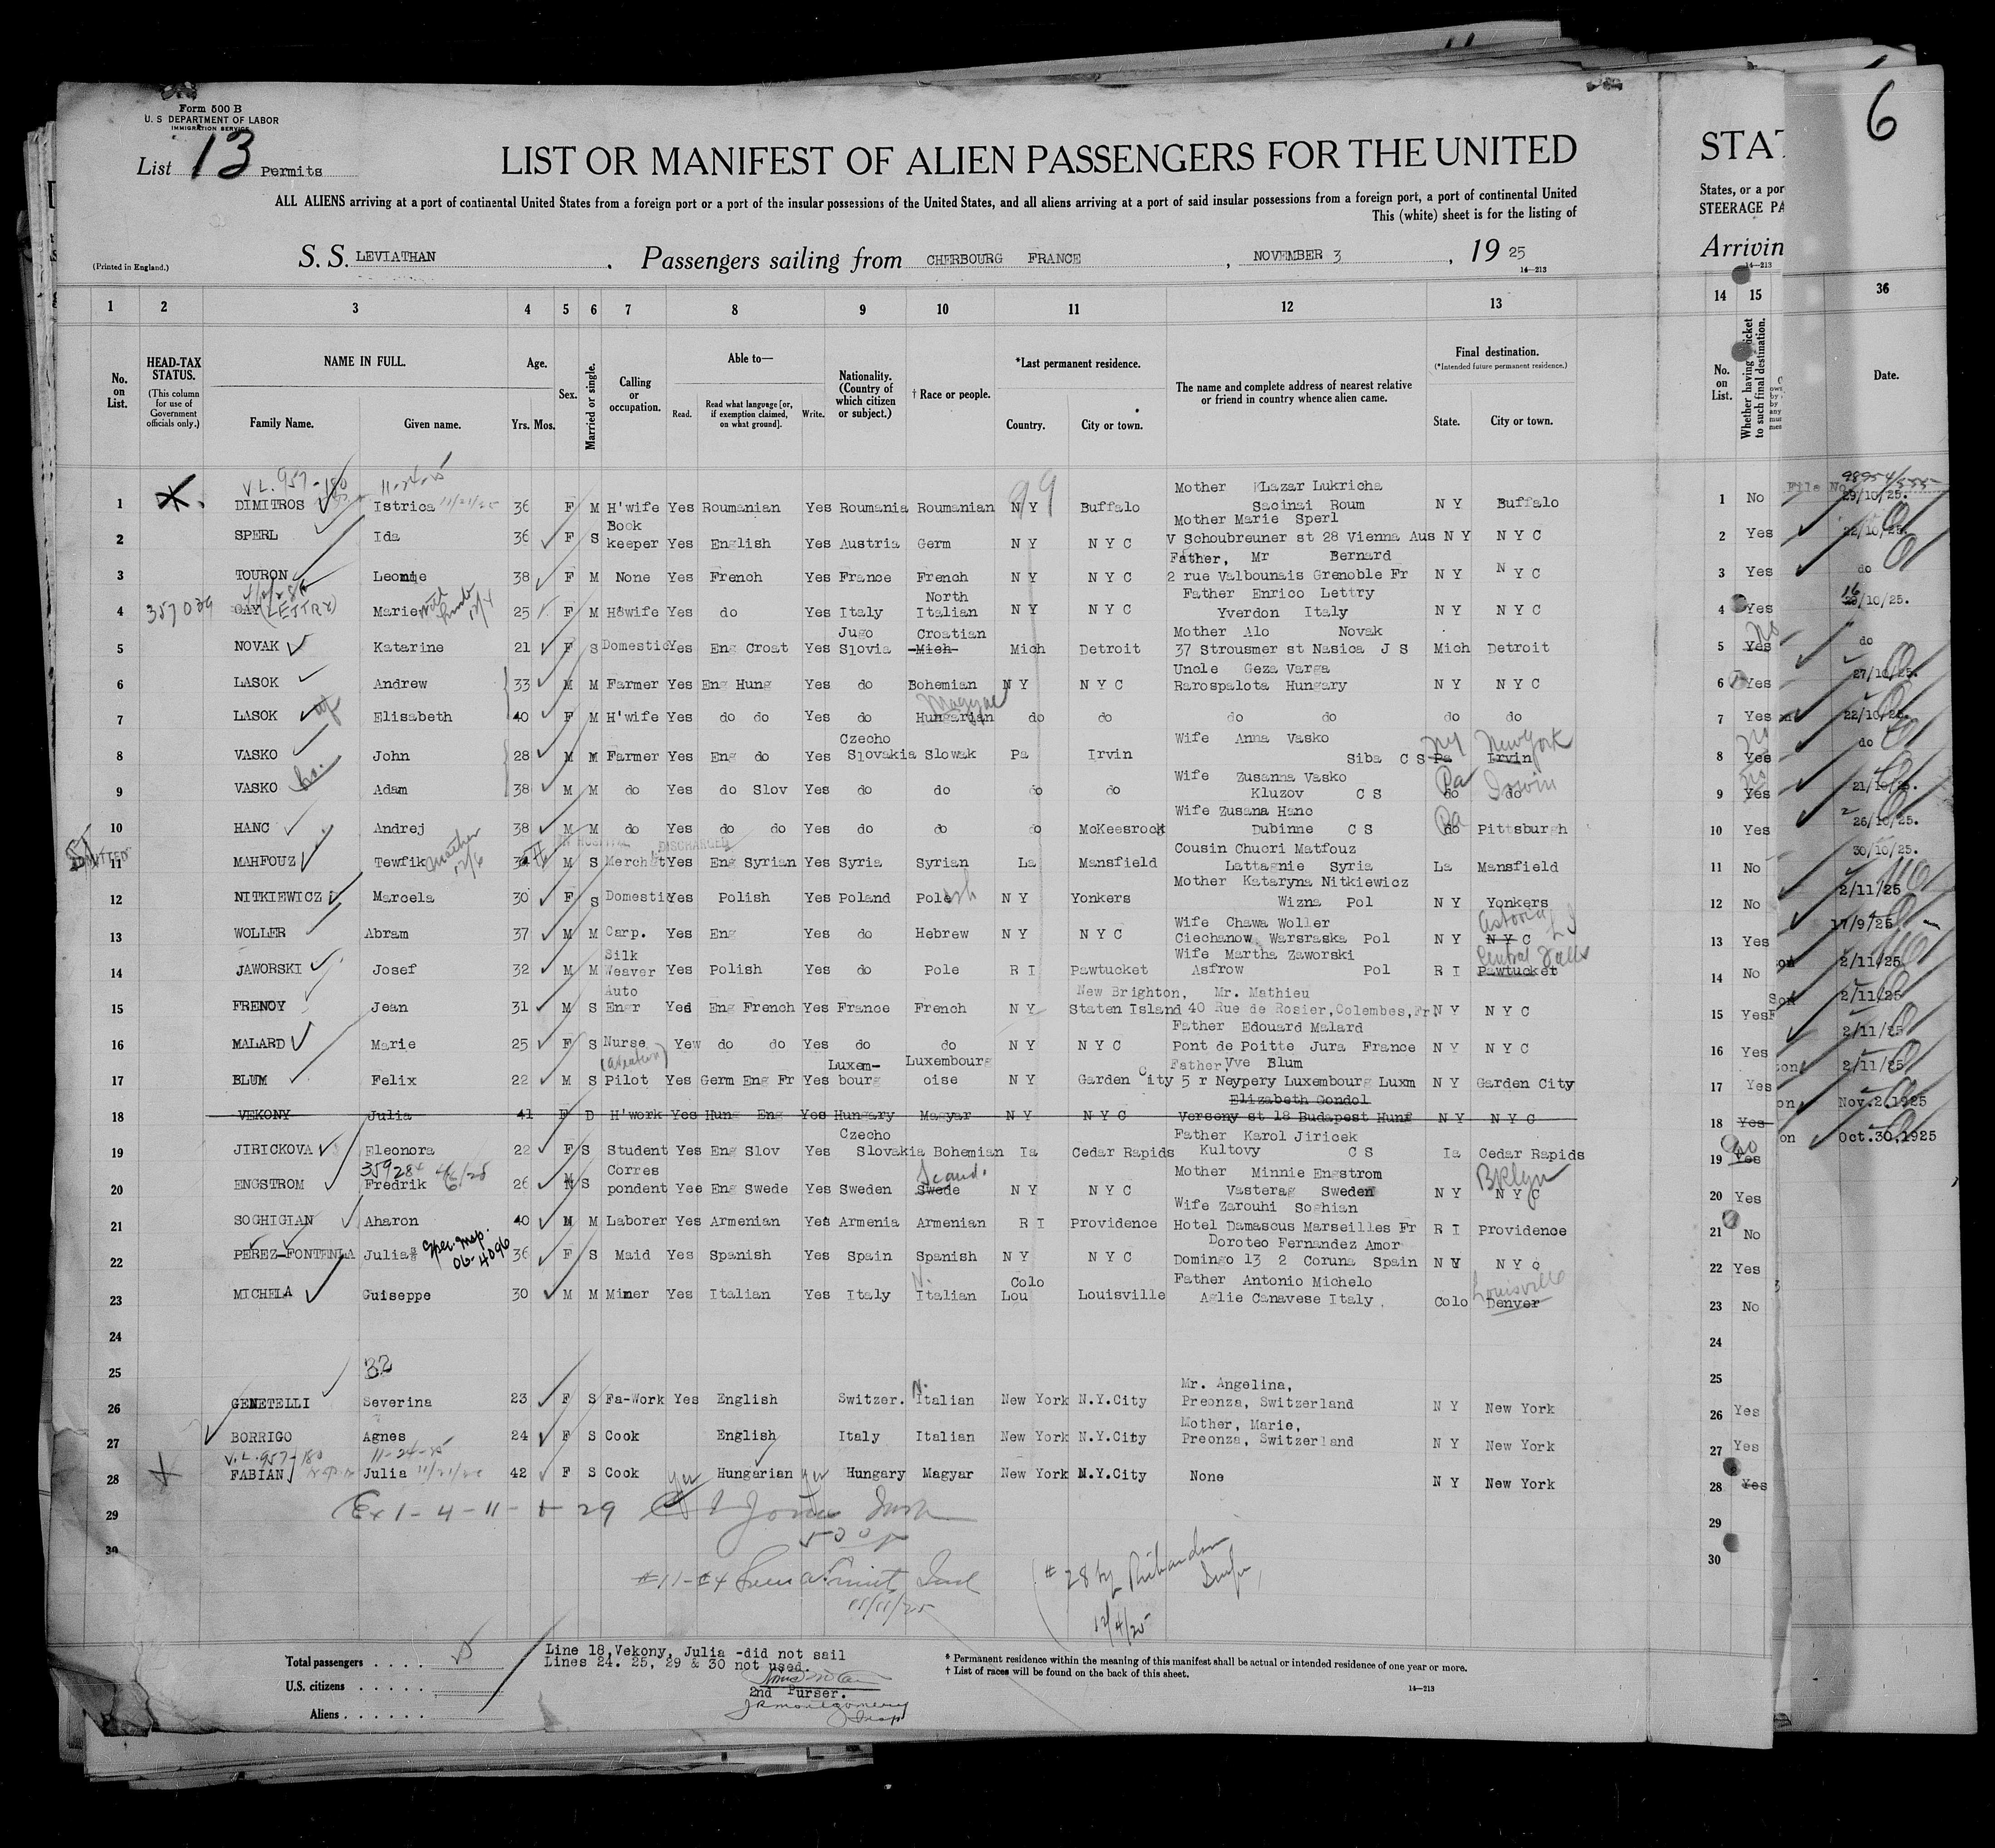 Form 500 B
U. S DEPARTMENT OF LABOR
IMMIGRATION SERVICE
List 13 Permits
LIST OR MANIFEST OF ALIEN PASSENGERS FOR THE UNITED
ALL ALIENS arriving at a port of continental United States from a foreign port or a port of the insular possessions of the United States, and all aliens arriving at a port of said insular possessions from a foreign port, a port of continental United
This (white) sheet is for the listing of
(Printed in England.)
S. S. LEVIATHAN . Passengers sailing from CHERBOURG FRANCE , NOVEMBER 3 , 19 25
14—213
STAT
States, or a por
STEERAGE PA
Arrivin
14—213
6
1 2 3 4 5 6 7 8 9 10 11 12 13 14 15 36
No. on List.
HEAD-TAX STATUS.
(This column for use of Government officials only.)
NAME IN FULL.
Family Name. Given name.
Age.
Yrs. Mos.
Sex.
Married or single.
Calling or occupation.
Able to—
Read. Read what language [or, if exemption claimed, on what ground]. Write.
Nationality. (Country of which citizen or subject.)
† Race or people.
*Last permanent residence.
Country. City or town.
The name and complete address of nearest relative or friend in country whence alien came.
Final destination.
(*Intended future permanent residence.)
State. City or town.
No. on List.
Whether having a ticket to such final destination.
Date.
V.L. 957-180 11-24-25
1 DIMITROS Istrica 11/21/25 36 F M H'wife Yes Roumanian Yes Roumania Roumanian N Y Buffalo Mother Lazar Lukricha Sacinai Roum N Y Buffalo 1 No File No 29/10/25.
2 SPERL Ida 36 F S Book keeper Yes English Yes Austria Germ N Y N Y C Mother Marie Sperl V Schoubreuner st 28 Vienna Aus N Y N Y C 2 Yes 22/10/25.
3 TOURON Leonie 38 F M None Yes French Yes France French N Y N Y C Father, Mr Bernard 2 rue Valbounais Grenoble Fr N Y N Y C 3 Yes do
4 357039 GAY (LETTRY) Marie 25 F M H8wife Yes do Yes Italy North Italian N Y N Y C Father Enrico Lettry Yverdon Italy N Y N Y C 4 Yes 16/10/25.
5 NOVAK Katarine 21 F S Domestic Yes Eng Croat Yes Jugo Slovia Croatian Mich Mich Detroit Mother Alo Novak 37 Strousmer st Nasica J S Mich Detroit 5 Yes No do
6 LASOK Andrew 33 M M Farmer Yes Eng Hung Yes do Bohemian N Y N Y C Uncle Geza Varga Rarospalota Hungary N Y N Y C 6 Yes 27/10/25.
7 LASOK Elisabeth 40 F M H'wife Yes do do Yes do Hungarian Magyar do do do do do do 7 Yes 22/10/25.
8 VASKO John 28 M M Farmer Yes Eng do Yes Czecho Slovakia Slowak Pa Irvin Wife Anna Vasko Siba C S Pa Irvin NY New York 8 Yes No do
9 VASKO Adam 38 M M do Yes do Slov Yes do do do do Wife Zusanna Vasko Kluzov C S do do Pa Irwin 9 Yes No 21/10/25.
10 HANC Andrej 38 M M do Yes do do Yes do do do McKeesrock Wife Zusana Hanc Dubinne C S do Pa Pittsburgh 10 Yes 26/10/25.
IN HOSPITAL DISCHARGED
ADMITTED
11 MAHFOUZ Tewfik 34 M S Merch't Yes Eng Syrian Yes Syria Syrian La Mansfield Cousin Chucri Matfouz Lattagnie Syria La Mansfield 11 No 30/10/25.
12 NITKIEWICZ Marcela 30 F S Domestic Yes Polish Yes Poland Pole N Y Yonkers Mother Kataryna Nitkiewicz Wizna Pol N Y Yonkers 12 No 2/11/25
13 WOLLER Abram 37 M M Carp. Yes Eng Yes do Hebrew N Y N Y C Wife Chawa Woller Ciechanow Warsraska Pol N Y N Y C Astoria L I 13 Yes 17/9/25.
14 JAWORSKI Josef 32 M M Silk Weaver Yes Polish Yes do Pole R I Pawtucket Wife Martha Zaworski Asfrow Pol R I Pawtucket Central Falls 14 No 2/11/25
15 FRENOY Jean 31 M S Auto Engr Yes Eng French Yes France French N Y New Brighton, Staten Island Mr. Mathieu 40 Rue de Rosier, Colombes, Fr N Y N Y C 15 Yes 2/11/25
16 MALARD Marie 25 F S Nurse Yew do do Yes do do N Y N Y C Father Edouard Malard Pont de Poitte Jura France N Y N Y C 16 Yes 2/11/25
17 BLUM Felix 22 M S (Aviation) Pilot Yes Germ Eng Fr Yes Luxem-bourg Luxembourg oise N Y Garden City Father, Vve Blum 5 r Neypery Luxembourg Luxm N Y Garden City 17 Yes 2/11/25
18 VEKONY Julia 41 F D H'work Yes Hung Eng Yes Hungary Magyar N Y N Y C Elizabeth Gondol Verseny st 18 Budapest Hung N Y N Y C 18 Yes Nov.2.1925
19 JIRICKOVA Eleonora 22 F S Student Yes Eng Slov Yes Czecho Slovakia Bohemian Ia Cedar Rapids Father Karol Jiricek Kultovy C S Ia Cedar Rapids 19 Yes No Oct.30.1925
20 ENGSTROM Fredrik 26 M S Corres pondent Yes Eng Swede Yes Sweden Swede Scand. N Y N Y C Mother Minnie Engstrom Vasterag Sweden N Y N Y C Bklyn 20 Yes
21 SOGHIGIAN Aharon 40 M M Laborer Yes Armenian Yes Armenia Armenian R I Providence Wife Zarouhi Soghian Hotel Damascus Marseilles Fr R I Providence 21 No
22 PEREZ-FONTENLA Julia 36 F S Maid Yes Spanish Yes Spain Spanish N Y N Y C Doroteo Fernandez Amor Domingo 13 2 Coruna Spain N Y N Y C 22 Yes
23 MICHELA Guiseppe 30 M M Miner Yes Italian Yes Italy N. Italian Colo Lou Louisville Father Antonio Michelo Aglie Canavese Italy Colo Denver Louisville 23 No
24 24
25 32 25
26 GENETELLI Severina 23 F S Fa-Work Yes English Switzer. N. Italian New York N.Y.City Mr. Angelina, Preonza, Switzerland N Y New York 26 Yes
27 BORRIGO Agnes 24 F S Cook English Italy Italian New York N.Y.City Mother, Marie, Preonza, Switzerland N Y New York 27 Yes
V.L. 957-180 11-24-25
28 FABIAN Julia 11/21/25 42 F S Cook Yes Hungarian Yes Hungary Magyar New York N.Y.City None N Y New York 28 Yes
29 Ex 1 - 4 - 11 - + 29 29
30 30
11/11/25
# 28 by Richardson
12/4/25
Total passengers . . . .
U.S. citizens . . . . .
Aliens . . . . . .
Line 18,Vekony, Julia -did not sail
Lines 24. 25, 29 & 30 not used.
2nd Purser.
J R Montgomery
Insp
* Permanent residence within the meaning of this manifest shall be actual or intended residence of one year or more.
† List of races will be found on the back of this sheet.
14—213